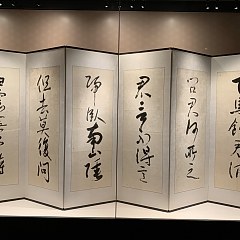 下馬飲君酒
問君何所之
君言不得意
歸臥南山陲
但去莫復問
白雲無盡時